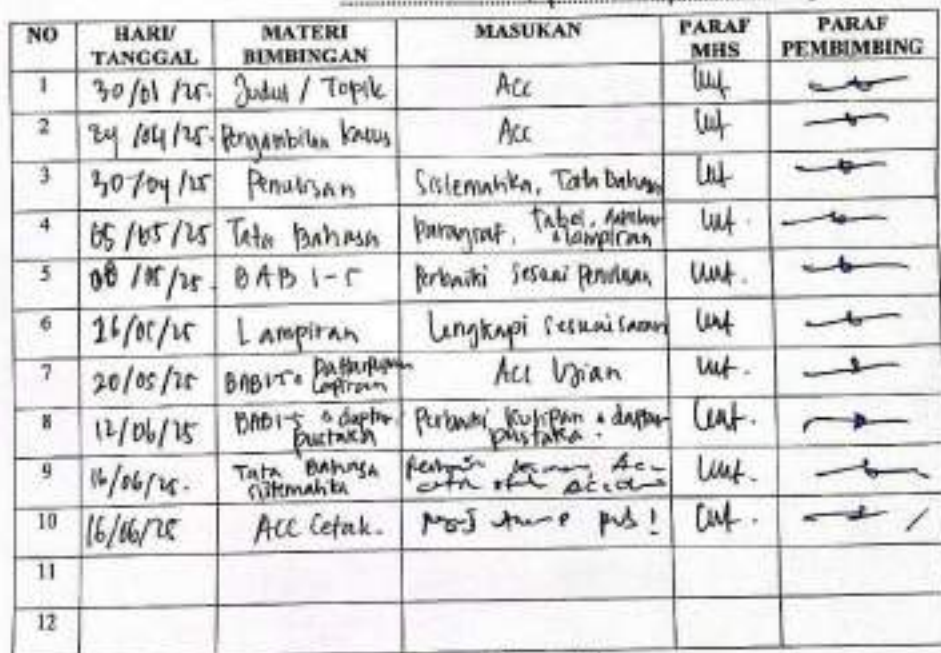 NO HARI/ TANGGAL MATERI BIMBINGAN MASUKAN PARAF MHS PARAF PEMBIMBING
1 30/01/25. Judul / Topik Acc
2 24/04/25. Pengambilan kasus Acc
3 30/04/25 Penulisan Sistematika, Tata bahasa
4 05/05/25 Tata Bahasa Paragraf, tabel, & lampiran
5 08/05/25. BAB 1-5 Perbaiki sesuai
6 16/05/25 Lampiran Lengkapi sesuai saran
7 20/05/25 BAB 1-5 Lampiran Acc Ujian
8 12/06/25 BAB 1-5 & daftar pustaka Perbaiki kutipan & daftar pustaka.
9 16/06/25. Tata Bahasa sistematika
10 16/06/25 Acc Cetak.
11
12